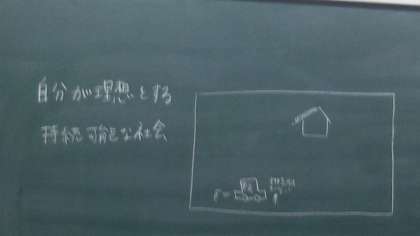 自分が理想とする
持続可能な社会